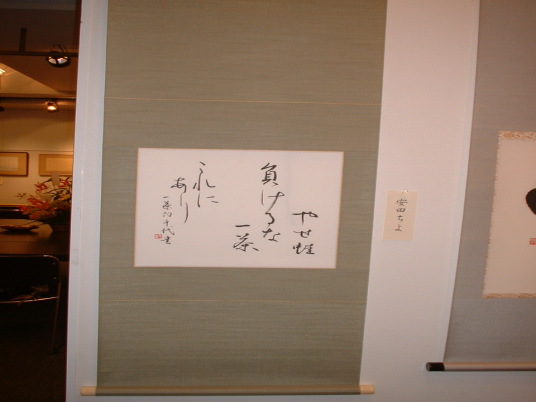 やせ蛙
負けるな
一茶
是に
あり
一茶の句 千代書
安田ちよ